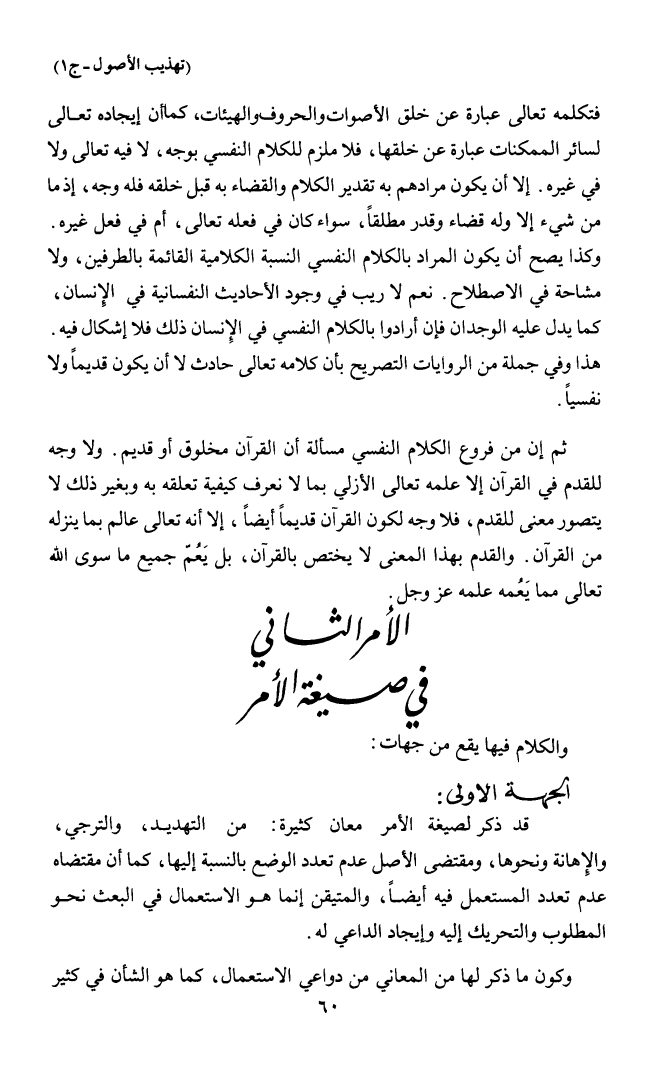 (تهذيب الأصول - ج١)
فتكلمه تعالى عبارة عن خلق الأصوات والحروف والهيئات، كما أن إيجاده تعالى
لسائر الممكنات عبارة عن خلقها، فلا ملزم للكلام النفسي بوجه، لا فيه تعالى ولا
في غيره. إلا أن يكون مرادهم به تقدير الكلام والقضاء به قبل خلقه فله وجه، إذ ما
من شيء إلا وله قضاء وقدر مطلقاً، سواء كان في فعله تعالى، أم في فعل غيره.
وكذا يصح أن يكون المراد بالكلام النفسي النسبة الكلامية القائمة بالطرفين، ولا
مشاحة في الاصطلاح. نعم لا ريب في وجود الأحاديث النفسانية في الإنسان،
كما يدل عليه الوجدان فإن أرادوا بالكلام النفسي في الإنسان ذلك فلا إشكال فيه.
هذا وفي جملة من الروايات التصريح بأن كلامه تعالى حادث لا أن يكون قديماً ولا
نفسياً.
ثم إن من فروع الكلام النفسي مسألة أن القرآن مخلوق أو قديم. ولا وجه
للقدم في القرآن إلا علمه تعالى الأزلي بما لا نعرف كيفية تعلقه به وبغير ذلك لا
يتصور معنى للقدم، فلا وجه لكون القرآن قديماً أيضاً، إلا أنه تعالى عالم بما ينزله
من القرآن. والقدم بهذا المعنى لا يختص بالقرآن، بل يَعُمّ جميع ما سوى الله
تعالى مما يَعُمه علمه عز وجل.
الأمر الثاني
في صيغة الأمر
والكلام فيها يقع من جهات:
الجهة الاولى:
قد ذكر لصيغة الأمر معان كثيرة: من التهديد، والترجي،
والإهانة ونحوها، ومقتضى الأصل عدم تعدد الوضع بالنسبة إليها، كما أن مقتضاه
عدم تعدد المستعمل فيه أيضاً، والمتيقن إنما هو الاستعمال في البعث نحو
المطلوب والتحريك إليه وإيجاد الداعي له.
وكون ما ذكر لها من المعاني من دواعي الاستعمال، كما هو الشأن في كثير
٦٠